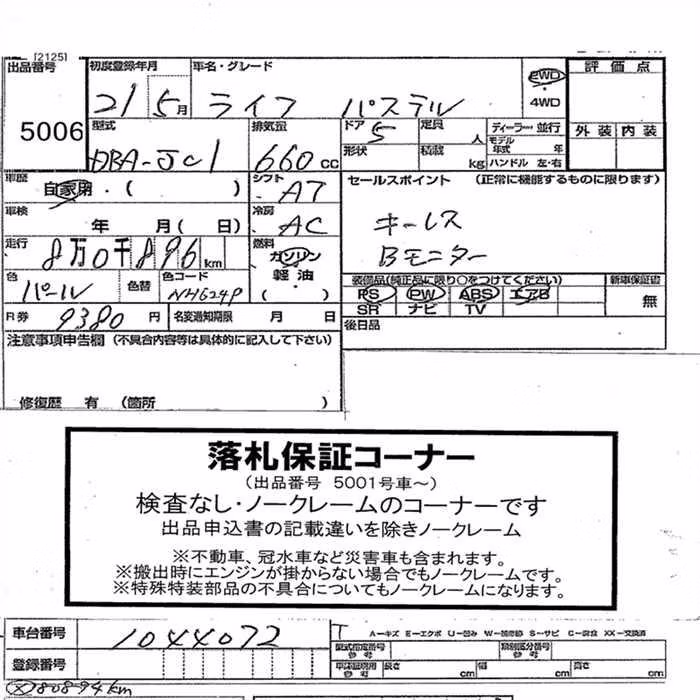 [2125]
出品番号 初度登録年月 車名・グレード 2WD 評価点
5006 21 5月 ライフ パステル 4WD
型式 排気量 ドア 定員 人 ディーラー 並行 外装 内装
DBA-JC1 660cc 5 モデル年式 年
形状 積載 kg ハンドル 左・右
車歴 自家用・( ) シフト AT セールスポイント (正常に機能するものに限ります)
車検 年 月( 日) 冷房 AC キーレス
走行 8万0千896km 燃料 ガソリン Bモニター
軽油
( )
色 パール 色替 色コード NH624P 装備品(純正品に限り○をつけてください) 新車保証書
PS PW ABS エアB 無
SR ナビ TV
R券 9380円 名変通知期限 月 日 後日品
注意事項申告欄 (不具合内容等は具体的に記入して下さい)
修復歴 有 (箇所 )
落札保証コーナー
(出品番号 5001号車~)
検査なし・ノークレームのコーナーです
出品申込書の記載違いを除きノークレーム
※不動車、冠水車など災害車も含まれます。
※搬出時にエンジンが掛からない場合でもノークレームです。
※特殊特装部品の不具合についてもノークレームになります。
車台番号 1044072 A-キズ E-エクボ U-凹み W-補修跡 S-サビ C-腐食 XX-交換済
型式指定番号 参考 類別区分番号 参考
登録番号 長さ cm 幅 cm 高さ cm
80894km